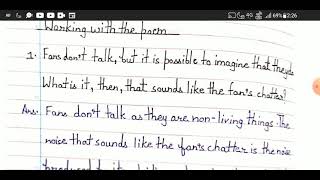 69% 2:26
Working with the poem
1. Fans don't talk, but it is possible to imagine that they do.
What is it, then, that sounds like the fan's chatter?
Ans. Fans don't talk as they are non-living things. The
noise that sounds like the fan's chatter is the noise